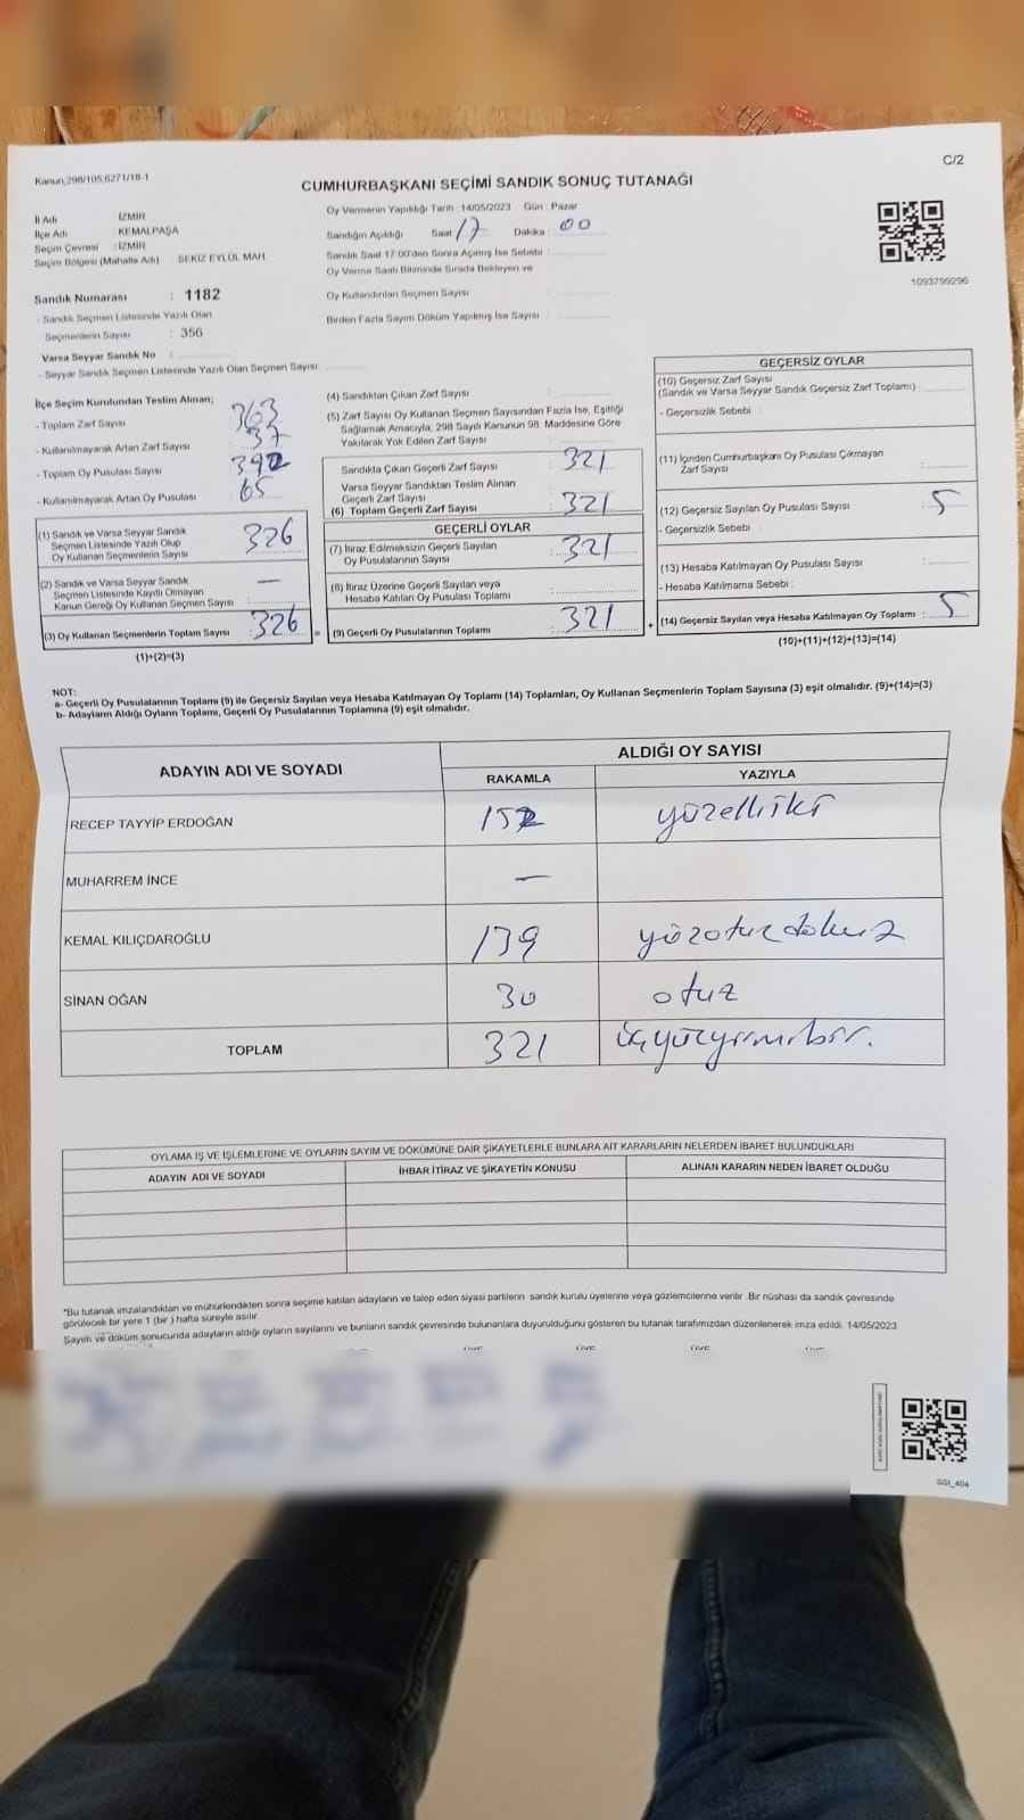 C/2
Kanun,298/105,6271/18-1
CUMHURBAŞKANI SEÇİMİ SANDIK SONUÇ TUTANAĞI
İl Adı İZMİR
İlçe Adı KEMALPAŞA
Seçim Çevresi : İZMİR
Seçim Bölgesi (Mahalle Adı) SEKİZ EYLÜL MAH.
Sandık Numarası : 1182
- Sandık Seçmen Listesinde Yazılı Olan
Seçmenlerin Sayısı : 356
Varsa Seyyar Sandık No :
- Seyyar Sandık Seçmen Listesinde Yazılı Olan Seçmen Sayısı
Oy Vermenin Yapıldığı Tarih : 14/05/2023 Gün : Pazar
Sandığın Açıldığı Saat 17 Dakika : 00
Sandık Saat 17:00'den Sonra Açılmış İse Sebebi :
Oy Verme Saati Bitiminde Sırada Bekleyen ve
Oy Kullandırılan Seçmen Sayısı
Birden Fazla Sayım Döküm Yapılmış İse Sayısı :
1093799296
İlçe Seçim Kurulundan Teslim Alınan;
- Toplam Zarf Sayısı 363
- Kullanılmayarak Artan Zarf Sayısı 37
- Toplam Oy Pusulası Sayısı 392
- Kullanılmayarak Artan Oy Pusulası 65
(1) Sandık ve Varsa Seyyar Sandık
Seçmen Listesinde Yazılı Olup
Oy Kullanan Seçmenlerin Sayısı 326
(2) Sandık ve Varsa Seyyar Sandık
Seçmen Listesinde Kayıtlı Olmayan
Kanun Gereği Oy Kullanan Seçmen Sayısı : —
(3) Oy Kullanan Seçmenlerin Toplam Sayısı : 326
(1)+(2)=(3)
(4) Sandıktan Çıkan Zarf Sayısı
(5) Zarf Sayısı Oy Kullanan Seçmen Sayısından Fazla İse, Eşitliği
Sağlamak Amacıyla, 298 Sayılı Kanunun 98. Maddesine Göre
Yakılarak Yok Edilen Zarf Sayısı
Sandıkta Çıkan Geçerli Zarf Sayısı 321
Varsa Seyyar Sandıktan Teslim Alınan
Geçerli Zarf Sayısı
(6) Toplam Geçerli Zarf Sayısı : 321
GEÇERLİ OYLAR
(7) İtiraz Edilmeksizin Geçerli Sayılan
Oy Pusulalarının Sayısı : 321
(8) İtiraz Üzerine Geçerli Sayılan veya
Hesaba Katılan Oy Pusulası Toplamı :
= (9) Geçerli Oy Pusulalarının Toplamı : 321
GEÇERSİZ OYLAR
(10) Geçersiz Zarf Sayısı
(Sandık ve Varsa Seyyar Sandık Geçersiz Zarf Toplamı)
- Geçersizlik Sebebi
(11) İçinden Cumhurbaşkanı Oy Pusulası Çıkmayan
Zarf Sayısı :
(12) Geçersiz Sayılan Oy Pusulası Sayısı : 5
- Geçersizlik Sebebi
(13) Hesaba Katılmayan Oy Pusulası Sayısı :
- Hesaba Katılmama Sebebi :
+ (14) Geçersiz Sayılan veya Hesaba Katılmayan Oy Toplamı : 5
(10)+(11)+(12)+(13)=(14)
NOT:
a- Geçerli Oy Pusulalarının Toplamı (9) ile Geçersiz Sayılan veya Hesaba Katılmayan Oy Toplamı (14) Toplamları, Oy Kullanan Seçmenlerin Toplam Sayısına (3) eşit olmalıdır. (9)+(14)=(3)
b- Adayların Aldığı Oyların Toplamı, Geçerli Oy Pusulalarının Toplamına (9) eşit olmalıdır.
ADAYIN ADI VE SOYADI ALDIĞI OY SAYISI
RAKAMLA YAZIYLA
RECEP TAYYİP ERDOĞAN 152 yüzelliiki
MUHARREM İNCE —
KEMAL KILIÇDAROĞLU 139 yüzotuzdokuz
SİNAN OĞAN 30 otuz
TOPLAM 321 üçyüzyirmibir.
OYLAMA İŞ VE İŞLEMLERİNE VE OYLARIN SAYIM VE DÖKÜMÜNE DAİR ŞİKAYETLERLE BUNLARA AİT KARARLARIN NELERDEN İBARET BULUNDUKLARI
ADAYIN ADI VE SOYADI İHBAR İTİRAZ VE ŞİKAYETİN KONUSU ALINAN KARARIN NEDEN İBARET OLDUĞU
*Bu tutanak imzalandıktan ve mühürlendikten sonra seçime katılan adayların ve talep eden siyasi partilerin sandık kurulu üyelerine veya gözlemcilerine verilir. Bir nüshası da sandık çevresinde
görülecek bir yere 1 (bir) hafta süreyle asılır.
Sayım ve döküm sonucunda adayların aldığı oyların sayılarını ve bunların sandık çevresinde bulunanlara duyurulduğunu gösteren bu tutanak tarafımızdan düzenlenerek imza edildi. 14/05/2023